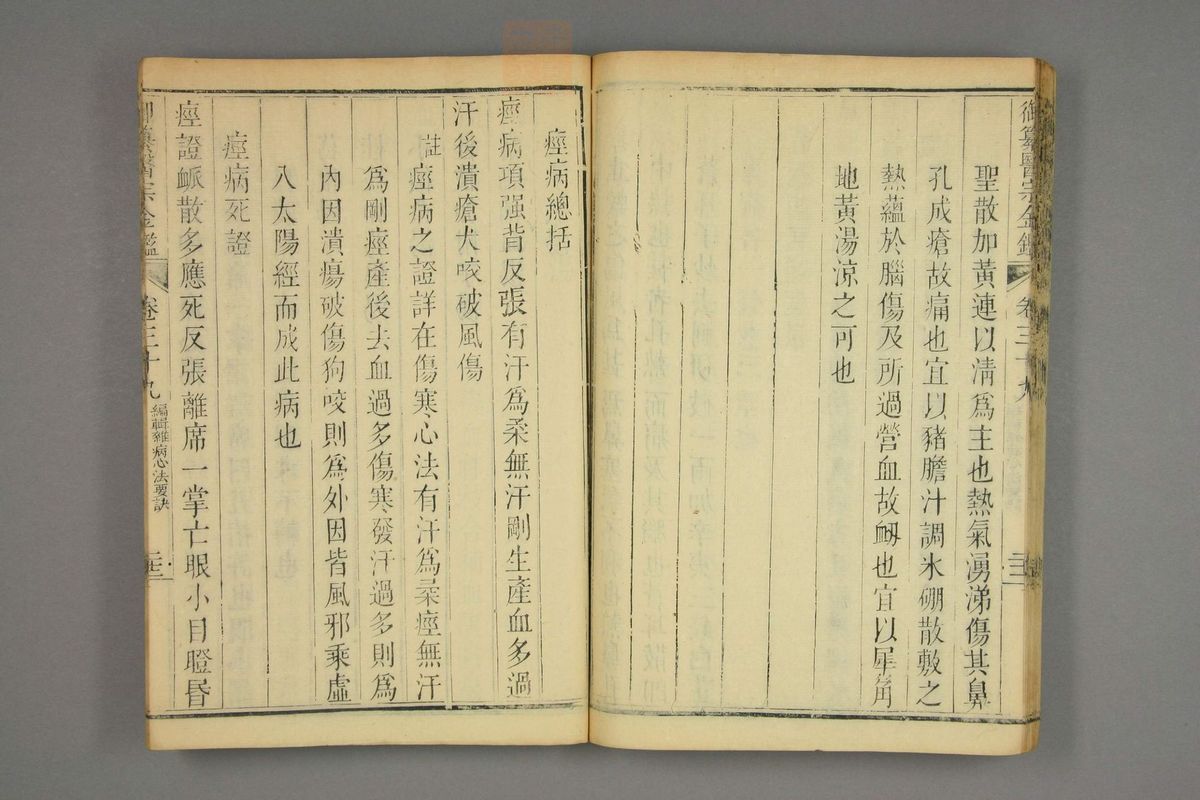 御纂醫宗金鑑
卷三十九
聖散加黃連以淸爲主也熱氣湧涕傷其鼻
孔成瘡故痛也宜以豬膽汁調氷硼散敷之
熱蘊於腦傷及所過營血故衂也宜以犀角
地黃湯涼之可也
痙病總括
痙病項强背反張有汗爲柔無汗剛生產血多過
汗後潰瘡犬咬破風傷
註痙病之證詳在傷寒心法有汗爲柔痙無汗
爲剛痙產後去血過多傷寒發汗過多則爲
內因潰瘍破傷狗咬則爲外因皆風邪乘虛
入太陽經而成此病也
痙病死證
痙證脈散多應死反張離席一掌亡眼小目瞪昬
御纂醫宗金鑑
卷三十九
編輯雜病心法要訣